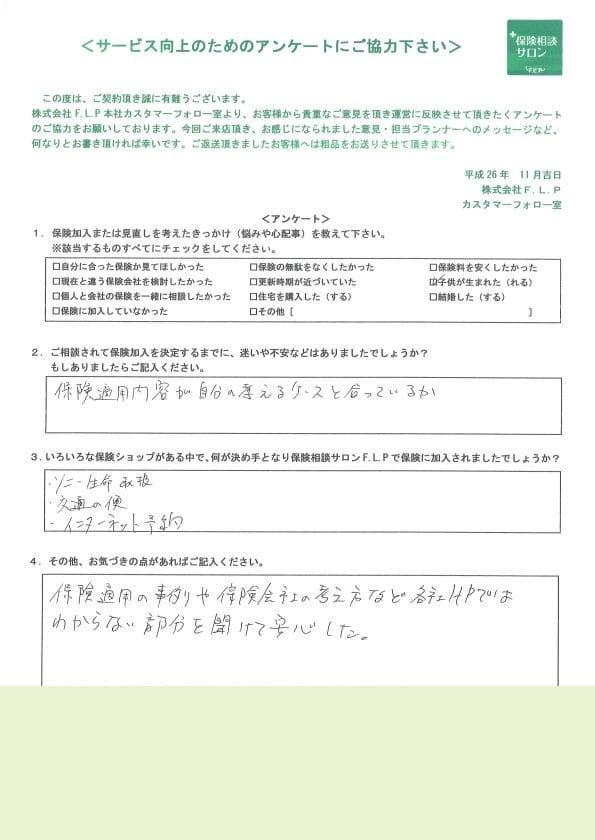 ＜サービス向上のためのアンケートにご協力下さい＞
保険相談
サロン
F.L.P
この度は、ご契約頂き誠に有難うございます。
株式会社F.L.P本社カスタマーフォロー室より、お客様から貴重なご意見を頂き運営に反映させて頂きたくアンケート
のご協力をお願いしております。今回ご来店頂き、お感じになられました意見・担当プランナーへのメッセージなど、
何なりとお書き頂ければ幸いです。ご返送頂きましたお客様へは粗品をお送りさせて頂きます。
平成26年　11月吉日
株式会社F.L.P
カスタマーフォロー室
＜アンケート＞
1．保険加入または見直しを考えたきっかけ（悩みや心配事）を教えて下さい。
※該当するものすべてにチェックをしてください。
□自分に合った保険か見てほしかった　□保険の無駄をなくしたかった　□保険料を安くしたかった
□現在と違う保険会社を検討したかった　□更新時期が近づいていた　☑子供が生まれた（れる）
□個人と会社の保険を一緒に相談したかった　□住宅を購入した（する）　□結婚した（する）
□保険に加入していなかった　□その他［　　　］
2．ご相談されて保険加入を決定するまでに、迷いや不安などはありましたでしょうか？
もしありましたらご記入ください。
保険適用内容が自分の考えるケースと合っているか
3．いろいろな保険ショップがある中で、何が決め手となり保険相談サロンF.L.Pで保険に加入されましたでしょうか？
・ソニー生命取扱
・交通の便
・インターネット予約
4．その他、お気づきの点があればご記入ください。
保険適用の事例や保険会社の考え方など各社HPでは
わからない部分を聞けて安心した。